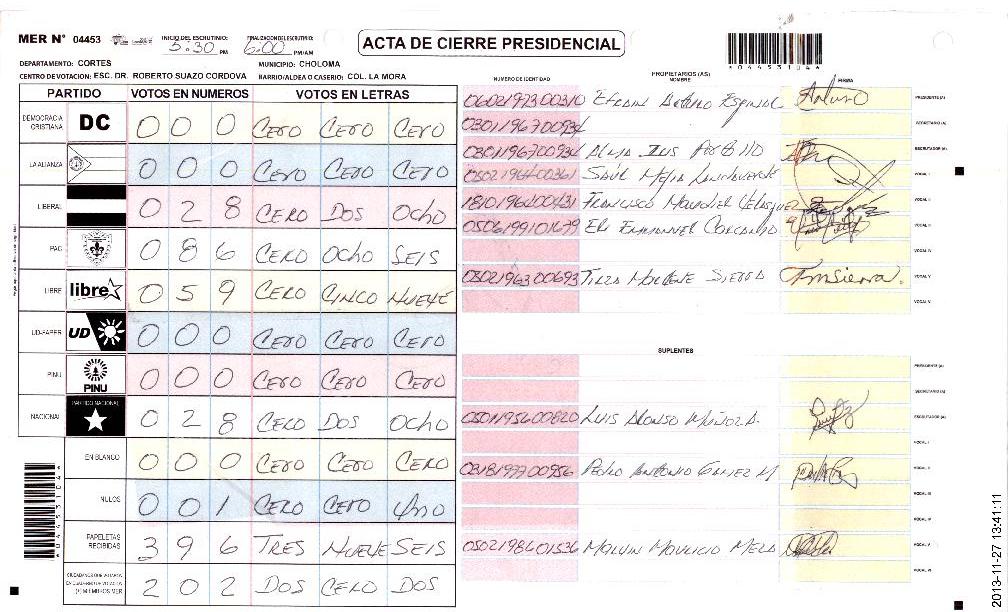 MER N° 04453
INICIO DEL ESCRUTINIO: 5:30 PM
FINALIZACION DEL ESCRUTINIO: 6:00 PM/AM
ACTA DE CIERRE PRESIDENCIAL
*0445310 4*
DEPARTAMENTO: CORTES
MUNICIPIO: CHOLOMA
CENTRO DE VOTACION: ESC. DR. ROBERTO SUAZO CORDOVA
BARRIO/ALDEA O CASERIO: COL. LA MORA
PARTIDO VOTOS EN NUMEROS VOTOS EN LETRAS
DEMOCRACIA CRISTIANA DC 0 0 0 CERO CERO CERO
LA ALIANZA 0 0 0 CERO CERO CERO
LIBERAL 0 2 8 CERO DOS OCHO
PAC 0 8 6 CERO OCHO SEIS
LIBRE libre 0 5 9 CERO CINCO NUEVE
UD-FAPER UD 0 0 0 CERO CERO CERO
PINU PINU 0 0 0 CERO CERO CERO
NACIONAL PARTIDO NACIONAL 0 2 8 CERO DOS OCHO
EN BLANCO 0 0 0 CERO CERO CERO
NULOS 0 0 1 CERO CERO UNO
PAPELETAS RECIBIDAS 3 9 6 TRES NUEVE SEIS
2 0 2 DOS CERO DOS
NUMERO DE IDENTIDAD
PROPIETARIOS (AS)
NOMBRE
FIRMA
0602197300310 Arturo PRESIDENTE (A)
SECRETARIO (A)
ESCRUTADOR (A)
Saúl Mejia VOCAL I
1810196400431 Francisco VOCAL II
0506199101679 Eli Emmanuel VOCAL III
VOCAL IV
0502196300693 Tirza Sierra TmSierra. VOCAL V
SUPLENTES
PRESIDENTE (A)
SECRETARIO (A)
0501195600820 Luis Alonso ESCRUTADOR (A)
VOCAL I
0318197700956 Pedro Antonio Gamez M VOCAL II
VOCAL III
VOCAL IV
0502198601536 Mauricio VOCAL V
VOCAL VI
2013-11-27 13:41:11